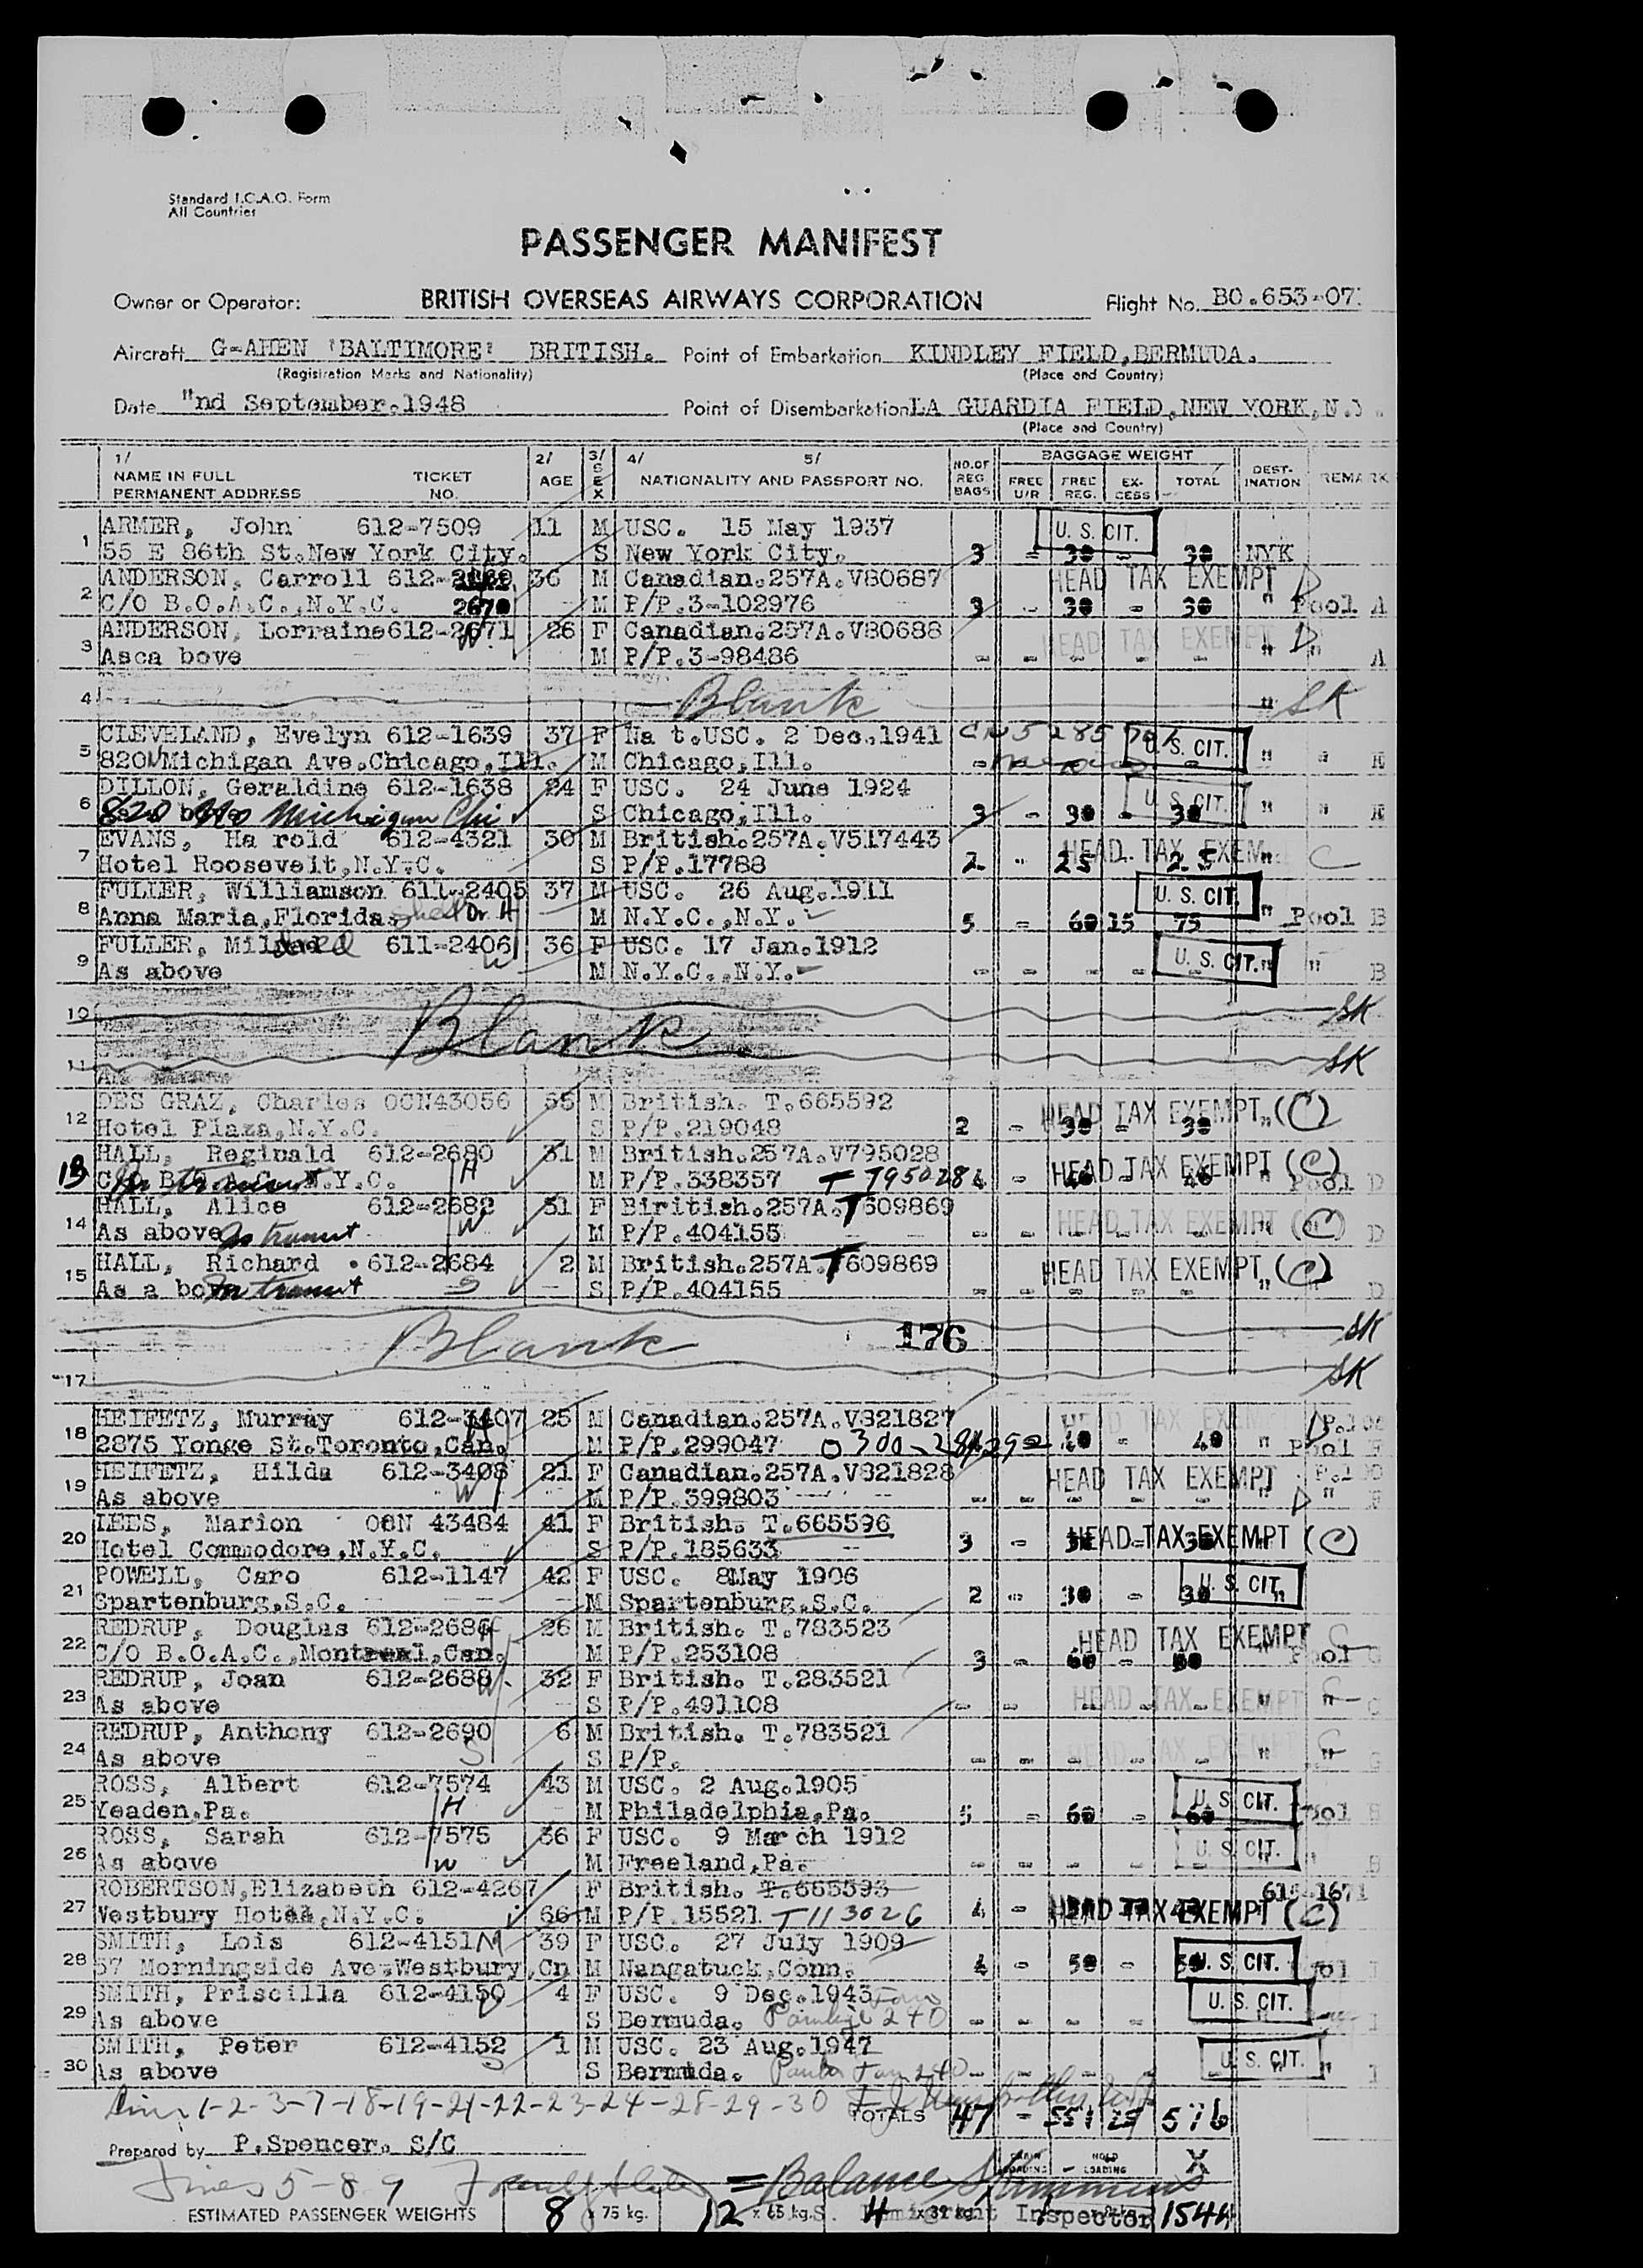 Standard I.C.A.O. Form
All Countries
PASSENGER MANIFEST
Owner or Operator: BRITISH OVERSEAS AIRWAYS CORPORATION Flight No. BO.653-07
Aircraft G-AHEN 'BALTIMORE' BRITISH. Point of Embarkation KINDLEY FIELD, BERMUDA.
(Registration Marks and Nationality) (Place and Country)
Date "nd September.1948 Point of Disembarkation LA GUARDIA FIELD, NEW YORK, N.Y.
(Place and Country)
1/ 2/ 3/ 4/ 5/ NO. OF REG BAGS BAGGAGE WEIGHT DEST-INATION REMARK
NAME IN FULL TICKET AGE SEX NATIONALITY AND PASSPORT NO. FREE U/R FREE REG. EX-CESS TOTAL
PERMANENT ADDRESS NO.
1 ARMER, John 612-7509 11 M USC. 15 May 1937 U. S. CIT.
55 E 86th St.New York City. S New York City. 3 - 30 - 30 NYK
2 ANDERSON, Carroll 612- 36 M Canadian.257A.V80687 HEAD TAX EXEMPT
C/O B.O.A.C.,N.Y.C. 2670 M P/P.3-102976 3 - 30 - 30 " Pool A
3 ANDERSON, Lorraine612-2671 26 F Canadian.257A.V80688 HEAD TAX EXEMPT
Asca bove W M P/P.3-98486 - - - - - " " A
4 Blank " SK
5 CLEVELAND, Evelyn 612-1639 37 F Na t.USC. 2 Dec.1941 U. S. CIT.
820N Michigan Ave.Chicago,Ill. M Chicago,Ill. " " E
6 DILLON, Geraldine 612-1638 24 F USC. 24 June 1924 U. S. CIT.
820 No Michigan Chi S Chicago,Ill. 3 - 30 - 30 " " E
7 EVANS, Ha rold 612-4321 30 M British.257A.V517443 HEAD TAX EXEM
Hotel Roosevelt,N.Y.C. S P/P.17788 2 - 25 - 25 " C
8 FULLER, Williamson 611-2405 37 M USC. 26 Aug.1911 U. S. CIT.
Anna Maria,Florida H M N.Y.C.,N.Y. 5 - 60 15 75 " Pool B
9 FULLER, Mildred 611-2406 36 F USC. 17 Jan.1912 U. S. CIT.
As above W M N.Y.C.,N.Y. - - - - - " " B
10 Blank SK
11 SK
12 DES GRAZ, Charles OCN43056 55 M British. T.665592 HEAD TAX EXEMPT (C)
Hotel Plaza,N.Y.C. S P/P.219048 2 - 30 - 30 "
13 HALL, Reginald 612-2680 31 M British.257A.V795028 HEAD TAX EXEMPT (C)
In transit N.Y.C. H M P/P.338357 T 795028 4 - 46 - 46 " Pool D
14 HALL, Alice 612-2682 31 F Biritish.257A.T609869 HEAD TAX EXEMPT (C)
As above In transit W M P/P.404155 - - - - - " D
15 HALL, Richard 612-2684 2 M British.257A.T609869 HEAD TAX EXEMPT (C)
As a bove In transit S S P/P.404155 - - - - - " D
Blank 176 SK
17 SK
18 HEIFETZ, Murray 612-3407 25 M Canadian.257A.V321827
2875 Yonge St.Toronto,Can. M P/P.299047 40 - 40 " Pool F
19 HEIFETZ, Hilda 612-3408 21 F Canadian.257A.V321828 HEAD TAX EXEMPT
As above W M P/P.399803 - - - - - " " F
20 LEES, Marion OCN 43484 41 F British. T.665596 HEAD TAX EXEMPT (C)
Hotel Commodore,N.Y.C. S P/P.185633 3 - 30 - 30 "
21 POWELL, Caro 612-1147 42 F USC. 8May 1906 U. S. CIT.
Spartenburg,S.C. M Spartenburg,S.C. 2 - 30 - 30 "
22 REDRUP, Douglas 612-2686 26 M British. T.783523 HEAD TAX EXEMPT C
C/O B.O.A.C.,Montreal,Can. H M P/P.253108 3 - 60 - 60 " Pool G
23 REDRUP, Joan 612-2688 32 F British. T.283521 HEAD TAX EXEMPT
As above W S P/P.491108 - - - - - " " G
24 REDRUP, Anthony 612-2690 6 M British. T.783521 HEAD TAX EXEMPT C
As above S S P/P. - - - - - " " G
25 ROSS, Albert 612-7574 43 M USC. 2 Aug.1905 U. S. CIT.
Yeaden.Pa. H M Philadelphia,Pa. 5 - 60 - 60 Pool H
26 ROSS, Sarah 612-7575 36 F USC. 9 March 1912 U. S. CIT.
As above W M Freeland,Pa. - - - - - "
27 ROBERTSON,Elizabeth 612-4267 F British. T.665593
Westbury Hotel,N.Y.C. 66 M P/P.15521 T113026 4 - HEAD TAX EXEMPT (C)
28 SMITH, Lois 612-4151 M 39 F USC. 27 July 1909 U. S. CIT.
57 Morningside Ave.Westbury,Cn M Nangatuck,Conn. 4 - 50 - 50 Pool I
29 SMITH, Priscilla 612-4150 4 F USC. 9 Dec.1943 U. S. CIT.
As above S Bermuda. 240 - - - - - I
30 SMITH, Peter 612-4152 1 M USC. 23 Aug.1947 U. S. CIT.
As above S S Bermuda. 240 - - - - - " I
1-2-3-7-18-19-21-22-23-24-28-29-30 TOTALS 47 - 551 25 576
Prepared by P.Spencer. S/C
CABIN LOADING - HOLD LOADING X
Lines 5-8-9 = Balance
ESTIMATED PASSENGER WEIGHTS 8 x 75 kg. 12 x 65 kg. 4 x 39 kg. Immigrant Inspector 1544